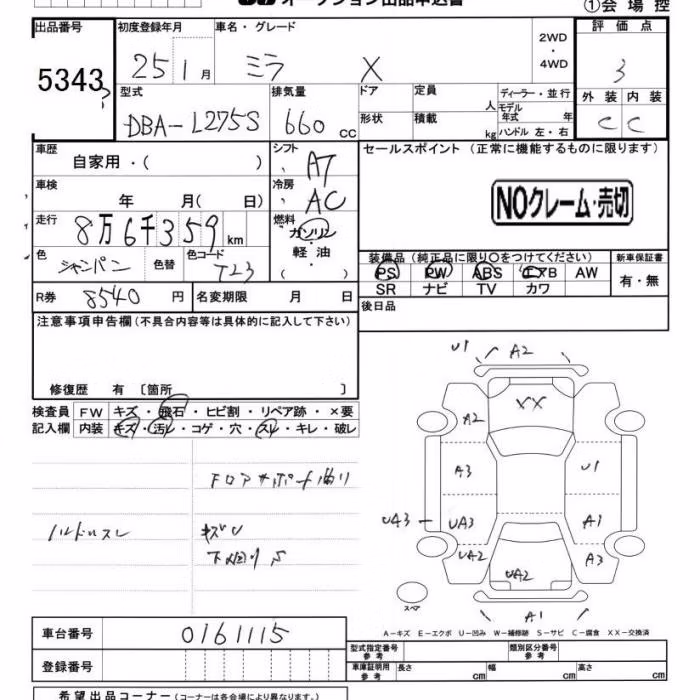 オークション出品申込書
①会場控
出品番号 初度登録年月 車名・グレード 2WD・4WD 評価点
5343 25 1月 ミラ X 3
型式 排気量 ドア 定員 人 ディーラー・並行 外装 内装
DBA-L275S 660cc 形状 積載 kg モデル年式 年 ハンドル 左・右 C C
車歴 自家用・( ) シフト AT セールスポイント (正常に機能するものに限ります)
車検 年 月( 日) 冷房 AC
NOクレーム・売切
走行 8万6千359km 燃料 ガソリン・軽油・( )
色 シャンパン 色替 色コード T23
装備品 (純正品に限り○をつけてください) 新車保証書
PS PW ABS エアB AW 有・無
SR ナビ TV カワ
R券 8540円 名変期限 月 日 後日品
注意事項申告欄(不具合内容等は具体的に記入して下さい)
修復歴 有 [箇所 ]
検査員記入欄 FW キズ・飛石・ヒビ割・リペア跡・×要
内装 キズ・汚レ・コゲ・穴・スレ・キレ・破レ
フロアサポート曲り
ハンドルスレ キズU
下廻りS
U1 A2
XX
A2
A3 U1
UA3 UA3 A1
UA2 A3
UA2
スペア
A1
A-キズ E-エクボ U-凹み W-補修跡 S-サビ C-腐食 XX-交換済
車台番号 0161115
登録番号
型式指定番号 参考 類別区分番号 参考
車庫証明用 参考 長さ cm 幅 cm 高さ cm
希望出品コーナー(コーナーは各会場により異なります。)